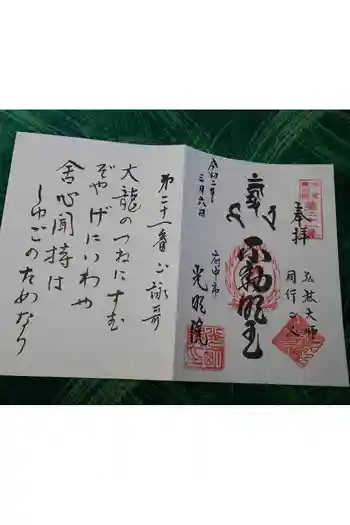 奉拝
弘法大師
同行二人
不動明王
府中市
光明院
令和二年
三月六日
第二十一番 ご詠哥
大龍のつねにすむ
ぞやげにいわや
舎心聞持は
しゅごのためなり